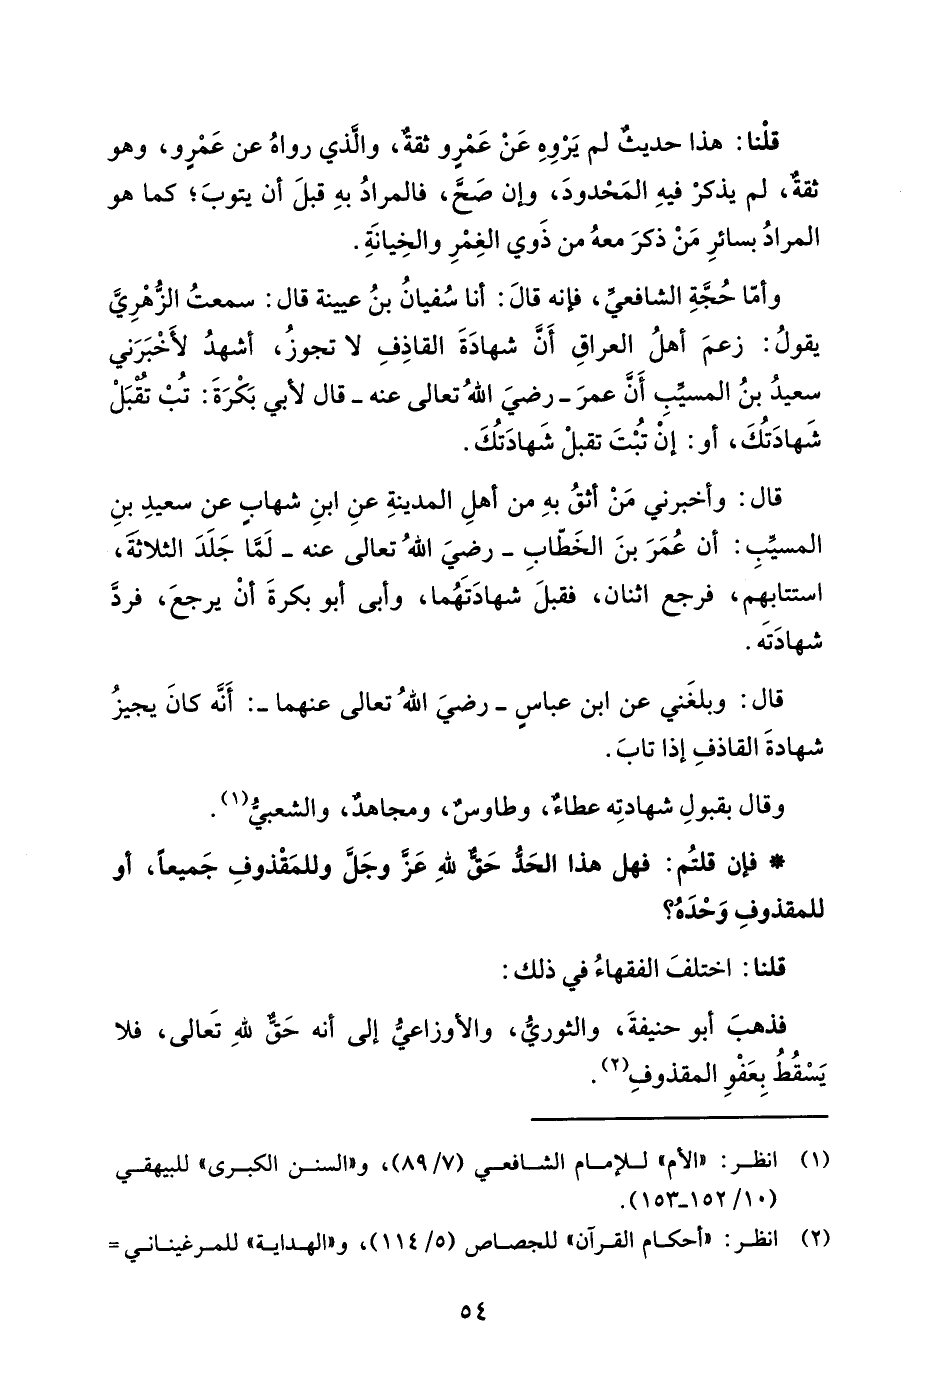 قلْنا: هذا حديثٌ لم يَرْوِهِ عَنْ عَمْرٍو ثقةٌ، والَّذي رواهُ عن عَمْرٍو، وهو
ثقةٌ، لم يذكرْ فيهِ المَحْدودَ، وإن صَحَّ، فالمرادُ بهِ قبلَ أن يتوبَ؛ كما هو
المرادُ بسائرِ مَنْ ذكرَ معهُ من ذَوي الغِمْرِ والخِيانَةِ.
وأمّا حُجَّةِ الشافعيِّ، فإنه قالَ: أنا سُفيانُ بنُ عيينة قال: سمعتُ الزُّهْرِيَّ
يقولُ: زعمَ أهلُ العراقِ أَنَّ شهادَةَ القاذِفِ لا تجوزُ، أشهدُ لأَخْبَرَني
سعيدُ بنُ المسيِّبِ أَنَّ عمرَ ـ رضيَ اللهُ تعالى عنه ـ قال لأبي بَكْرَةَ: تُبْ تُقْبَلْ
شَهادَتُكَ، أو: إنْ تُبْتَ تقبلْ شَهادَتُكَ.
قال: وأخبرني مَنْ أثقُ بهِ من أهلِ المدينةِ عنِ ابنِ شهابٍ عن سعيدِ بنِ
المسيِّبِ: أن عُمَرَ بنَ الخَطّابِ ـ رضيَ اللهُ تعالى عنه ـ لَمَّا جَلَدَ الثلاثةَ،
استتابهم، فرجع اثنان، فقبلَ شهادَتَهُما، وأبى أبو بكرةَ أنْ يرجعَ، فردَّ
شهادَتَه.
قال: وبلغَني عن ابن عباسٍ ـ رضيَ اللهُ تعالى عنهما ـ: أَنَّه كانَ يجيزُ
شهادةَ القاذفِ إذا تابَ.
وقال بقبولِ شهادتِه عطاءٌ، وطاوسٌ، ومجاهدٌ، والشعبيُّ(١).
* فإن قلتُم: فهل هذا الحَدُّ حَقٌّ للهِ عَزَّ وجَلَّ وللمَقْذوفِ جَميعاً، أو
للمقذوفِ وَحْدَهُ؟
قلنا: اختلفَ الفقهاءُ في ذلك:
فذهبَ أبو حنيفةَ، والثوريُّ، والأوزاعيُّ إلى أنه حَقٌّ للهِ تَعالى، فلا
يَسْقُطُ بِعَفْوِ المقذوفِ(٢).
(١) انظر: «الأم» للإمام الشافعي (٧/ ٨٩)، و«السنن الكبرى» للبيهقي
(١٠/ ١٥٢ـ١٥٣).
(٢) انظر: «أحكام القرآن» للجصاص (٥/ ١١٤)، و«الهداية» للمرغيناني =
٥٤